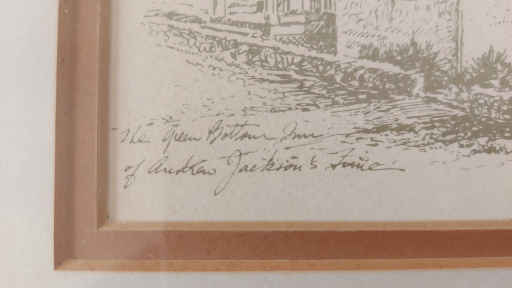 The Green Bottom Inn
of Andrew Jackson's Time